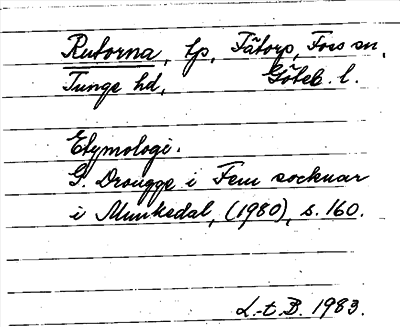 Rutorna, lp, Fåtorp, Foss sn,
Tunge hd, Göteb. l.
Etymologi.
G. Drougge i Fem socknar
i Munkedal, (1980), s. 160.
L.-t. B. 1983.